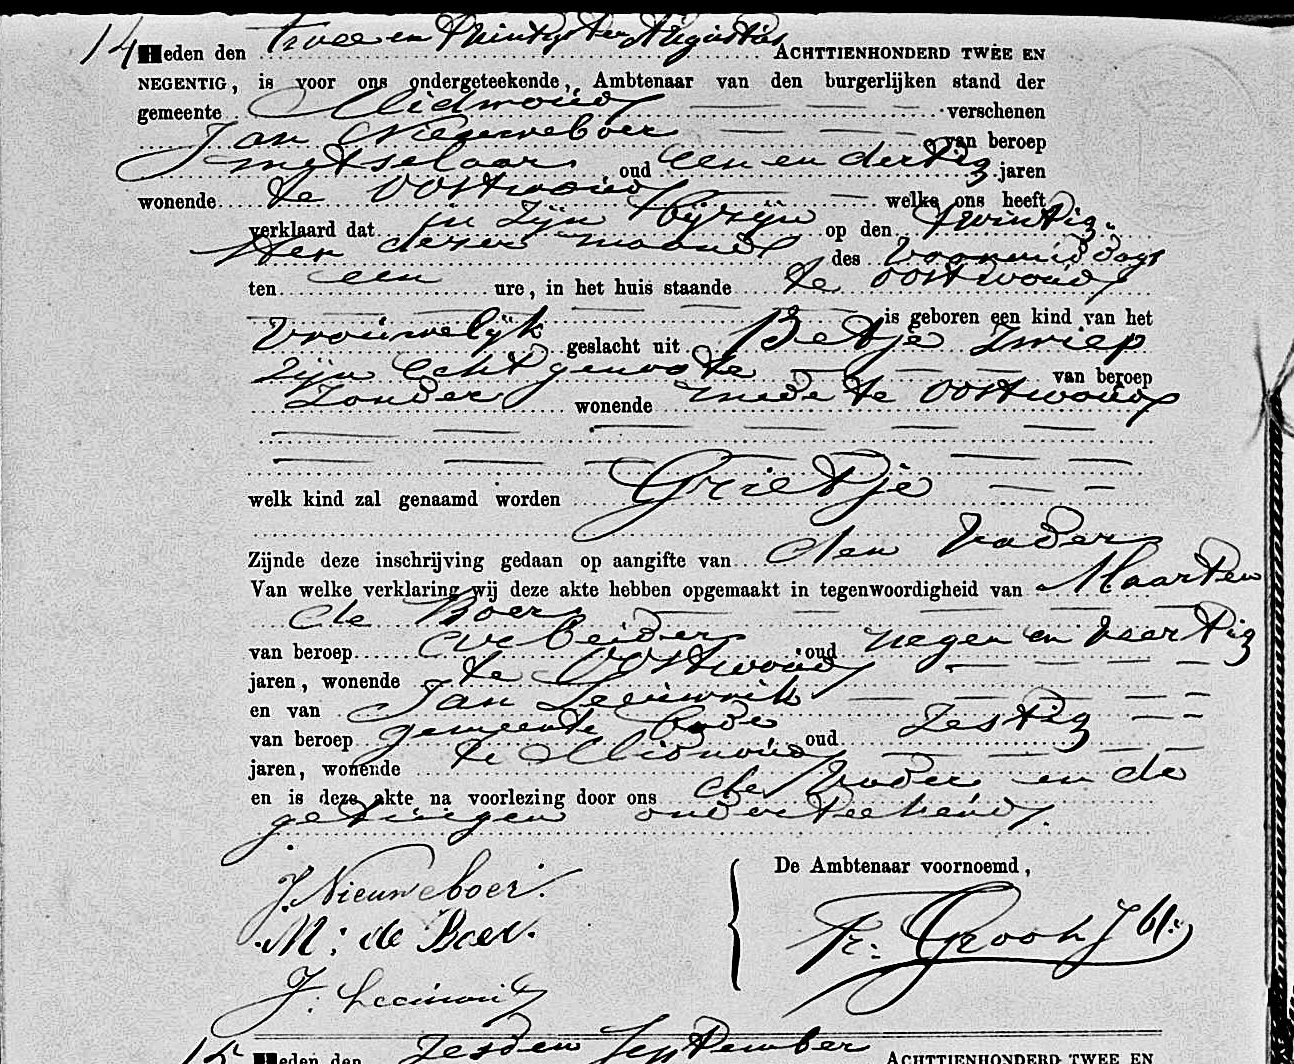 14 Heden den twee en twintigsten Augustus ACHTTIENHONDERD TWEE EN
NEGENTIG, is voor ons ondergeteekende, Ambtenaar van den burgerlijken stand der
gemeente Midwoud verschenen
Jan Nieuweboer van beroep
metselaar oud een en dertig jaren
wonende te Oostwoud welke ons heeft
verklaard dat in zijn bijzijn op den twintig-
sten dezer maand des voormiddags
ten een ure, in het huis staande te Oostwoud
is geboren een kind van het
vrouwelijk geslacht uit Betje Zwiep
zijn echtgenoote van beroep
zonder wonende mede te Oostwoud
welk kind zal genaamd worden Grietje
Zijnde deze inschrijving gedaan op aangifte van den vader
Van welke verklaring wij deze akte hebben opgemaakt in tegenwoordigheid van Maarten
de Boer
van beroep arbeider oud negen en veertig
jaren, wonende te Oostwoud
en van Jan Leeuwrik
van beroep gemeente bode oud zestig
jaren, wonende te Midwoud
en is deze akte na voorlezing door ons de vader en de
getuigen onderteekend.
De Ambtenaar voornoemd,
J. Nieuweboer.
M: de Boer.
J. Leeuwrik
15 Heden den zesden September ACHTTIENHONDERD TWEE EN